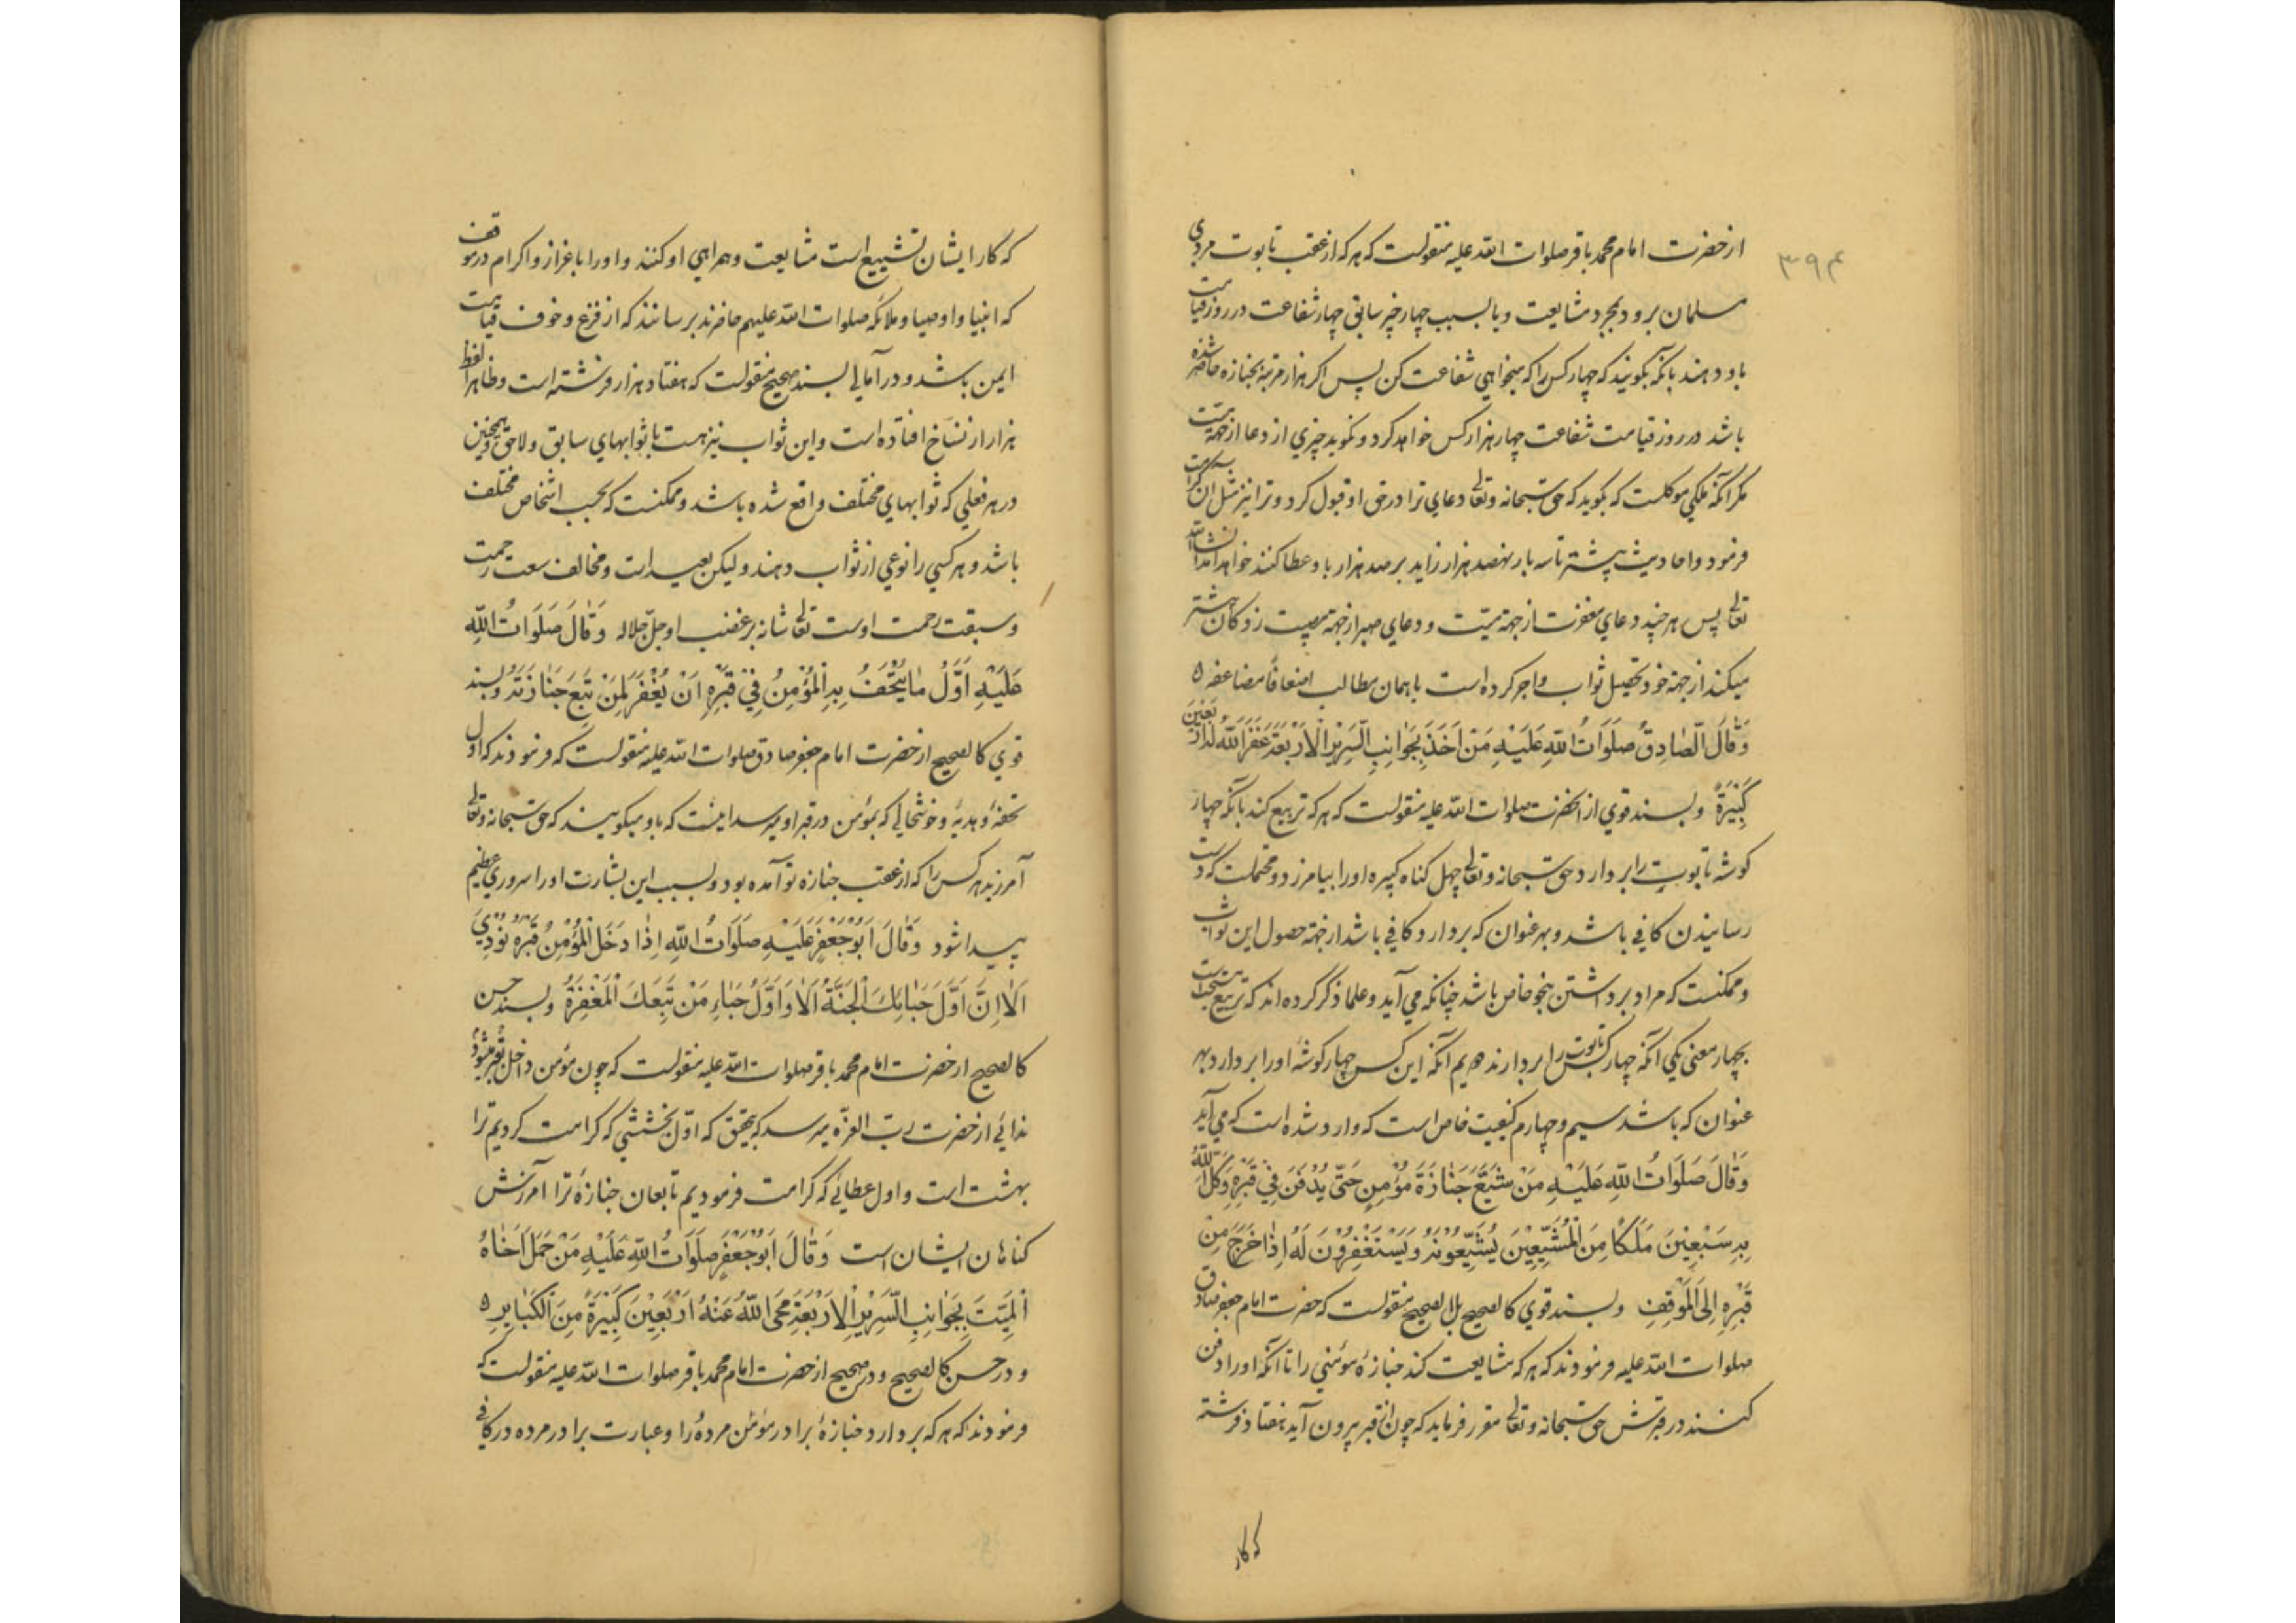 ۳۹۴
از حضرت امام محمد باقر صلوات الله علیه منقولست که هر که از عقب تابوت مردی
مسلمان برود بمجرد مشایعت و یا بسبب چهار چیز سابق چهار شفاعت در روز قیامت
باو دهند بآنکه بگویند که چهار کس را که میخواهی شفاعت کن پس اکر هزار مرتبه بجنازه حاضر شده
باشد در روز قیامت شفاعت چهار هزار کس خواهد کرد و نکوید چیزی از دعا از جهة میت
مکر آنکه ملکی موکلست که بکوید که حق سبحانه و تعالی دعای ترا در حق او قبول کرد و ترا نیز مثل آن کرامت
فرمود و احادیث پیشتر تا سه بار نهصد هزار زاید بر صد هزار باو عطا کنند خواهد آمد انشاالله
تعالی پس هر چند دعای مغفرت از جهة میت و دعای صبر از جهة مصیبت زدکان بیشتر
میکند از جهة خود تحصیل ثواب و اجر کرده است با همان مطالب اضعافا مضاعفه ه
وَقَالَ الصَّادِقُ صَلَوَاتُ اللهِ عَلَیْهِ مَنْ اَخَذَ بِجَوَانِبِ السَّرِیْرِ الْاَرْبَعَةِ غَفَرَ اللهُ لَهُ اَرْبَعِیْنَ
کَبِیْرَةً و بسند قوی از انحضرت صلوات الله علیه منقولست که هر که تربیع کند بآنکه چهار
کوشه تابوت را بردارد حق سبحانه و تعالی چهل کناه کبیره او را بیامرزد و محتملست که دست
رسانیدن کافی باشد و بهر عنوان که بردارد کافی باشد از جهة حصول این ثواب
و ممکنست که مراد برداشتن بنحو خاص باشد چنانکه می آید و علما ذکر کرده اند که تربیع مستحبست
بچهار معنی یکی آنکه چهار کس تابوت را بردارند دویم آنکه این کس چهار کوشهٔ او را بردارد بهر
عنوان که باشد سیم و چهارم کیفیت خاص است که وارد شده است که می آید
وَقَالَ صَلَوَاتُ اللهِ عَلَیْهِ مَنْ شَیَّعَ جَنَازَةَ مُؤْمِنٍ حَتّٰی یُدْفَنَ فِیْ قَبْرِهِ وَکَّلَ اللهُ
بِهِ سَبْعِیْنَ مَلَکًا مِنَ الْمُشَیِّعِیْنَ یُشَیِّعُوْنَهُ وَیَسْتَغْفِرُوْنَ لَهُ اِذَا خَرَجَ مِنْ
قَبْرِهِ اِلَی الْمَوْقِفِ و بسند قوی کالصحیح بل الصحیح منقولست که حضرت امام جعفر صادق
صلوات الله علیه فرمودند که هر که مشایعت کند جنازهٔ مؤمنی را تا آنکه او را دفن
کنند در قبرش حق سبحانه و تعالی مقرر فرماید که چون از قبر بیرون آید هفتاد فرشته
که کار
که کار ایشان تشییع است مشایعت و همراهی او کنند و او را با عزاز و اکرام در موقف
که انبیا و اوصیا و ملائکه صلوات الله علیهم حاضرند برسانند که از فزع و خوف قیامت
ایمن باشد و در آمالی بسند صحیح منقولست که هفتاد هزار فرشته است و ظاهرا لفظ
هزار از نسّاخ افتاده است و این ثواب نیز هست با ثوابهای سابق و لاحق و همچنین
در هر فعلی که ثوابهای مختلف واقع شده باشد و ممکنست که بحسب اشخاص مختلف
باشد و هر کسی را نوعی از ثواب دهند و لیکن بعید است و مخالف سعت رحمت
و سبقت رحمت اوست تعالی شانه بر غضب او جل جلاله وَقَالَ صَلَوَاتُ اللهِ
عَلَیْهِ اَوَّلُ مَا یُتْحَفُ بِهِ الْمُؤْمِنُ فِیْ قَبْرِهِ اَنْ یُغْفَرَ لِمَنْ تَبِعَ جَنَازَتَهُ و بسند
قوی کالصحیح از حضرت امام جعفر صادق صلوات الله علیه منقولست که فرمودند که اول
تحفهٔ و هدیهٔ و خوشحالی که بمؤمن در قبر او میرسد اینست که باو میکویند که حق سبحانه و تعالی
آمرزید هر کس را که از عقب جنازه تو آمده بود و بسبب این بشارت او را سروری عظیم
پیدا شود وَقَالَ اَبُوْجَعْفَرٍ عَلَیْهِ صَلَوَاتُ اللهِ اِذَا دَخَلَ الْمُؤْمِنُ قَبْرَهُ نُوْدِیَ
اَلَا اِنَّ اَوَّلَ حَبَائِكَ الْجَنَّةُ اَلَا وَاَوَّلُ حَبَاءِ مَنْ تَبِعَكَ الْمَغْفِرَةُ و بسند حسن
کالصحیح از حضرت امام محمد باقر صلوات الله علیه منقولست که چون مؤمن داخل قبر میشود
ندائی از حضرت رب العزّه میرسد که بتحقیق که اوّل بخششی که کرامت کردیم ترا
بهشت است و اول عطائی که کرامت فرمودیم تابعان جنازهٔ ترا آمرزش
کناهان ایشان است وَقَالَ اَبُوْجَعْفَرٍ صَلَوَاتُ اللهِ عَلَیْهِ مَنْ حَمَلَ اَخَاهُ
الْمَیِّتَ بِجَوَانِبِ السَّرِیْرِ الْاَرْبَعَةِ مَحَی اللهُ عَنْهُ اَرْبَعِیْنَ کَبِیْرَةً مِنَ الْکَبَایِرِ ه
و در حسن کالصحیح و در صحیح از حضرت امام محمد باقر صلوات الله علیه منقولست که
فرمودند که هر که بردارد جنازهٔ برادر مؤمن مردهٔ را و عبارت برادر مرده در کافی